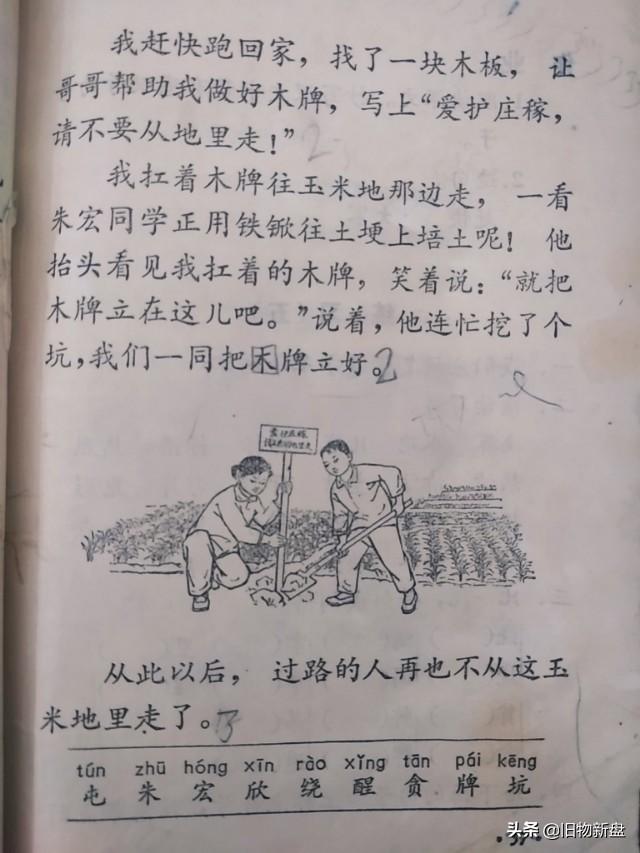 我赶快跑回家，找了一块木板，让
哥哥帮助我做好木牌，写上“爱护庄稼，
请不要从地里走！”2
我扛着木牌往玉米地那边走，一看
朱宏同学正用铁锨往土埂上培土呢！他
抬头看见我扛着的木牌，笑着说：“就把
木牌立在这儿吧。”说着，他连忙挖了个
坑，我们一同把木牌立好。2
爱护庄稼
请不要从地里走
从此以后，过路的人再也不从这玉
米地里走了。
tún zhū hóng xīn rào xǐng tān pái kēng
屯 朱 宏 欣 绕 醒 贪 牌 坑
·37·
头条 @旧物新盘